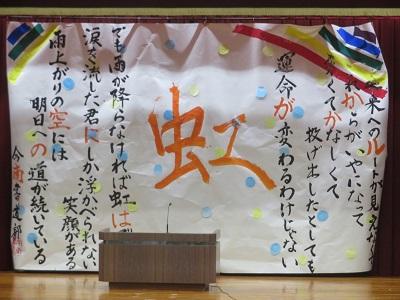 未来へのルートが見えな
れからがいやになって
なくてかなしくて
投げ出したとしても
運命が変わるわけじゃない
虹
でも雨が降らなければ虹は
涙を流した君にしか浮かべられない
笑顔がある
雨上がりの空には
明日への道が続いている